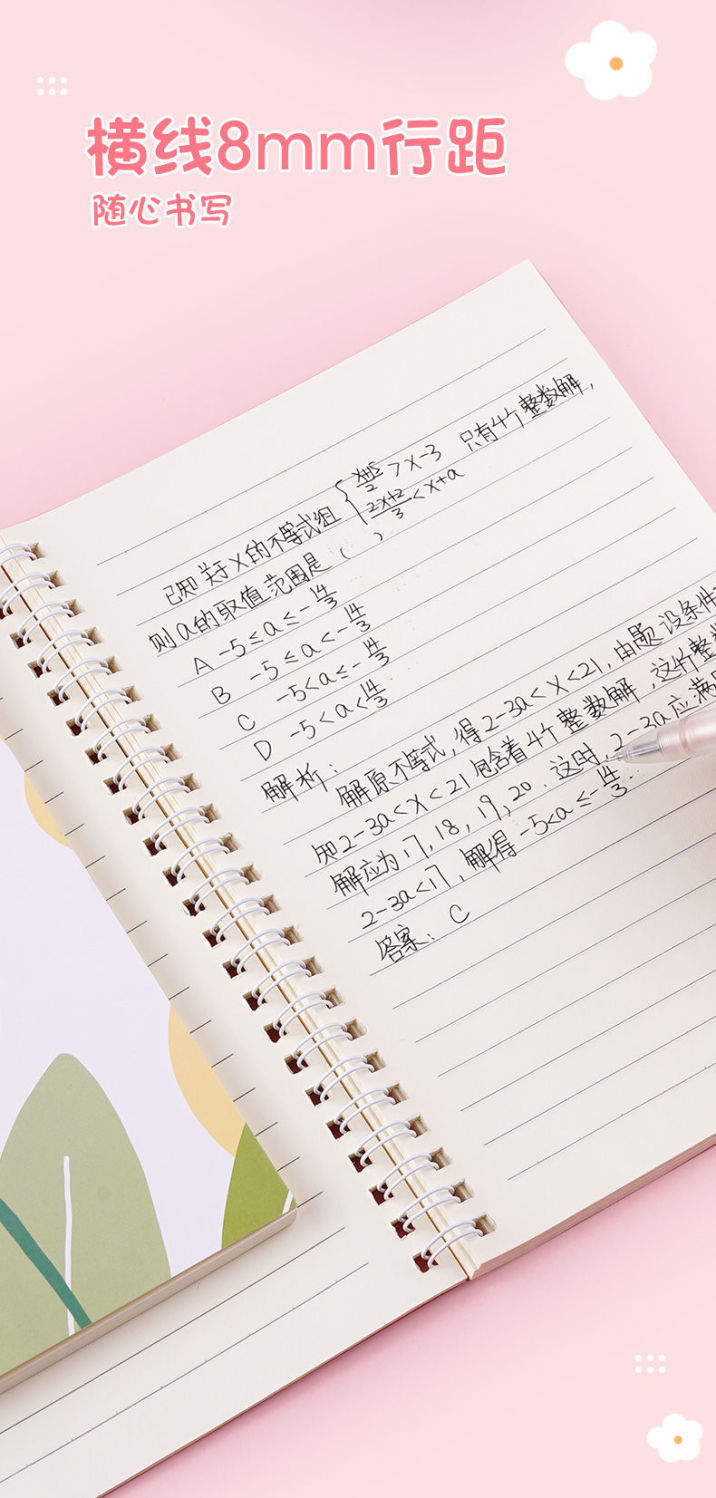 横线8mm行距
随心书写
已知关于x的不等式组 { x+5/2 > x-3 只有4个整数解,
2x+2/3 < x+a
则a的取值范围是 ( )
A -5≤a≤-14/3
B -5≤a<-14/3
C -5<a≤-14/3
D -5<a<14/3
解析:
解原不等式, 得2-3a<x<21, 由题设条件
知2-3a<x<21包含着4个整数解, 这4个整数
解应为17, 18, 19, 20. 这时, 2-3a应满
2-3a<17, 解得 -5<a≤-14/3.
答案: C